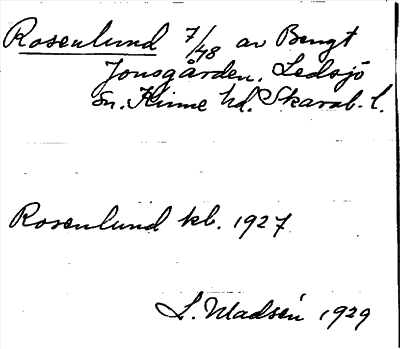 Rosenlund 7/48 av Bengt
Jonsgården, Ledsjö
sn. Kinne hd. Skarab. l.
Rosenlund kb. 1927
L. Madsén 1929